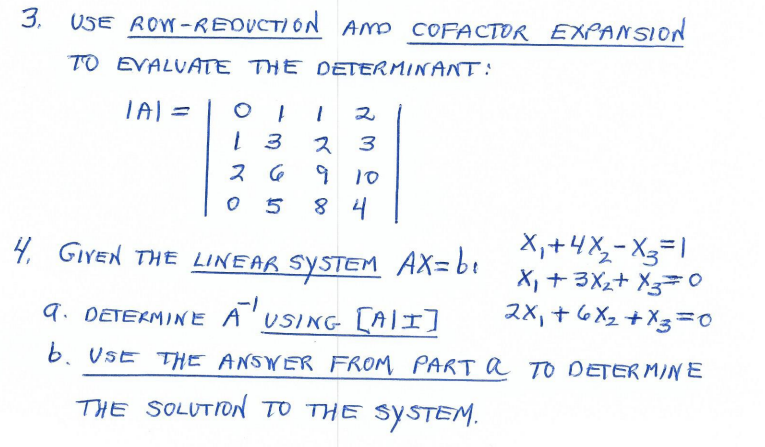 3. USE ROW-REDUCTION AND COFACTOR EXPANSION
TO EVALUATE THE DETERMINANT:
|A| = | 0 1 1 2 |
| 1 3 2 3 |
| 2 6 9 10 |
| 0 5 8 4 |
4. GIVEN THE LINEAR SYSTEM AX=b:
X₁+4X₂-X₃=1
X₁+3X₂+X₃=0
2X₁+6X₂+X₃=0
a. DETERMINE A⁻¹ USING [A|I]
b. USE THE ANSWER FROM PART a TO DETERMINE
THE SOLUTION TO THE SYSTEM.